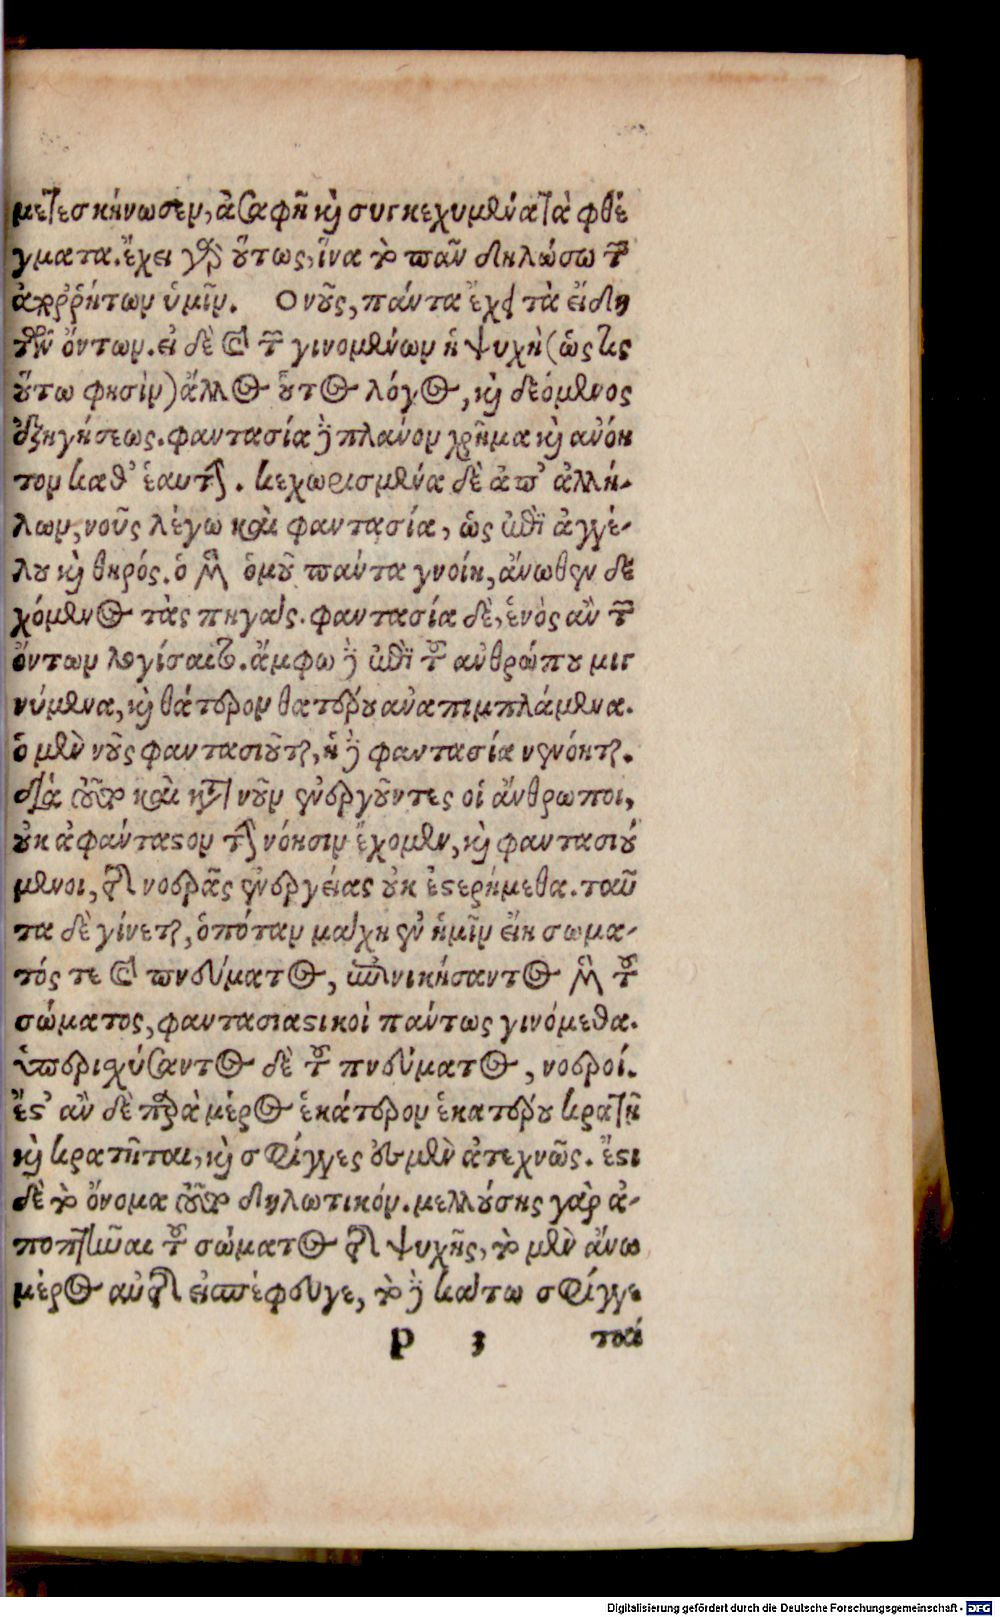 μετεσκήνωσεν, ἀσαφῆ καὶ συγκεχυμένα τὰ φθέ
γματα. ἔχει γὰρ οὕτως, ἵνα τὸ πᾶν δηλώσω τῶν
ἀπορρήτων ὑμῖν. Ο νοῦς, πάντα ἔχει τὰ εἴδη
τῶν ὄντων. εἰ δὲ καὶ τῶν γινομένων ἡ ψυχὴ (ὥς τις
οὕτω φησὶν) ἄλλος οὗτος λόγος, καὶ δεόμενος
ἐξηγήσεως. φαντασία δὲ πλάνον χρῆμα καὶ ἀνόη
τον καθ' ἑαυτήν. κεχωρισμένα δὲ ἀπ' ἀλλή-
λων, νοῦς λέγω καὶ φαντασία, ὡς ἐπὶ ἀγγέ-
λου καὶ θηρός. ὁ μὲν ὁμοῦ πάντα γνοίη, ἄνωθεν δε
χόμενος τὰς πηγάς. φαντασία δὲ, ἑνὸς ἂν τῶν
ὄντων λογίσαιτο. ἄμφω δὲ ἐπὶ τοῦ ἀνθρώπου μιγ
νύμενα, καὶ θάτερον θατέρου ἀναπιμπλάμενα.
ὁ μὲν νοῦς φαντασιοῦται, ἡ δὲ φαντασία νενόηται.
διὰ τοῦτο καὶ κατὰ νοῦν ἐνεργοῦντες οἱ ἄνθρωποι,
οὐκ ἀφάνταστον τὴν νόησιν ἔχομεν, καὶ φαντασιού
μενοι, τῆς νοερᾶς ἐνεργείας οὐκ ἐστερήμεθα. ταῦ
τα δὲ γίνεται, ὁπόταν μάχη ἐν ἡμῖν εἴη σώμα-
τός τε καὶ πνεύματος, νικήσαντος μὲν τοῦ
σώματος, φαντασιαστικοὶ πάντως γινόμεθα.
ὑπερισχύσαντος δὲ τοῦ πνεύματος, νοεροί.
ἔστ' ἂν δὲ παρὰ μέρος ἑκάτερον ἑκατέρου κρατῆ
καὶ κρατῆται, καὶ σφίγγες ἐσμὲν ἀτεχνῶς. ἔστι
δὲ τὸ ὄνομα τοῦτο δηλωτικόν. μελλούσης γὰρ ἀ-
ποπτῆναι τοῦ σώματος τῆς ψυχῆς, τὸ μὲν ἄνω
μέρος αὐτῆς εἰσέφευγε, τὸ δὲ κάτω σφίγγε
P 3 ται
Digitalisierung gefördert durch die Deutsche Forschungsgemeinschaft - DFG